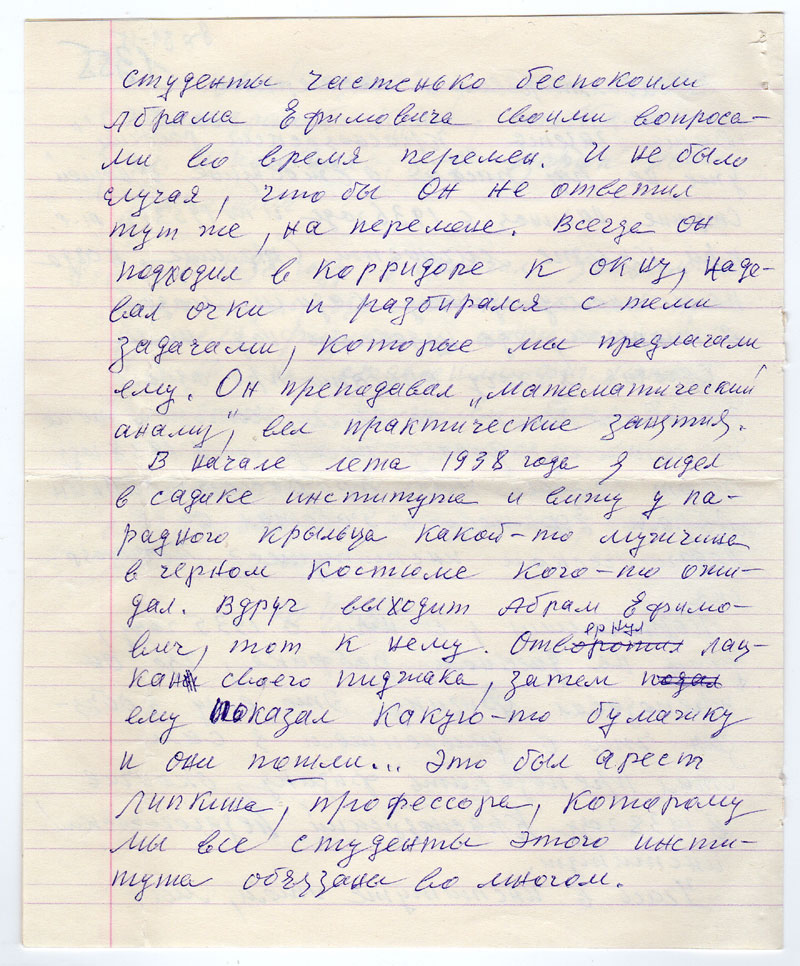 студенты частенько беспокоили
Абрама Ефимовича своими вопроса-
ми во время перемен. И не было
случая, что бы он не ответил
тут же, на перемене. Всегда он
подходил в корридоре к окну, наде-
вал очки и разбирался с теми
задачами, которые мы предлагали
ему. Он преподавал „математический
анализ", вел практические занятия.
В начале лета 1938 года я сидел
в садике института и вижу у па-
радного крыльца какой-то мужчина
в черном костюме кого-то ожи-
дал. Вдруг выходит Абрам Ефимо-
вич, тот к нему. Отвернул лац-
кан своего пиджака, затем подал
ему показал какую-то бумажку
и они пошли... Это был арест
Липкина, профессора, которому
мы все студенты этого инсти-
тута обязаны во многом.